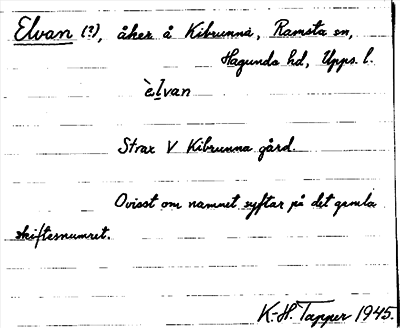 Elvan (?), åker å Kibrunna, Ramsta sn,
Hagunda hd, Upps. l.
èlvan
Strax V Kibrunna gård.
Ovisst om namnet syftar på det gamla
skiftesnumret.
K-H. Tapper 1945.